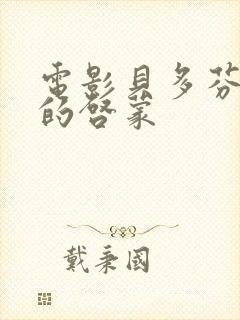 電影貝多芬
的啓蒙
戴秉國